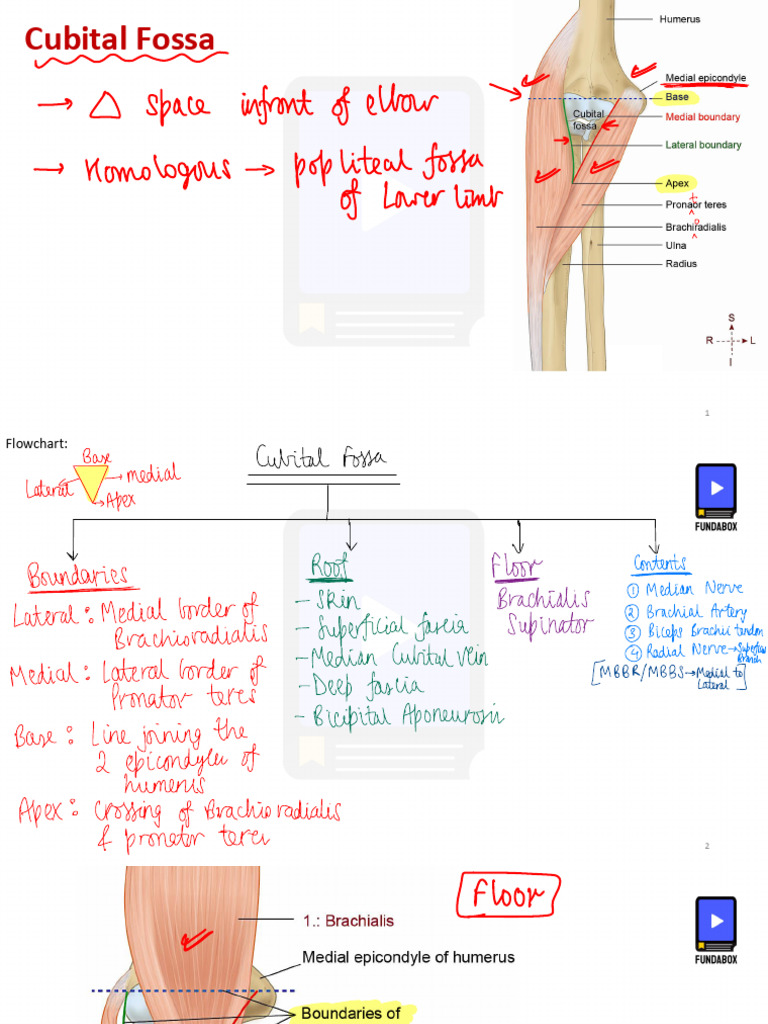 Cubital Fossa
→ △ space infront of elbow
→ Homologous → popliteal fossa
of Lower limb
Humerus
Medial epicondyle
Base
Cubital
fossa
Medial boundary
Lateral boundary
Apex
Pronaor teres
t
Brachiradialis
o
Ulna
Radius
S
R L
I
1
Flowchart:
Base
Lateral
medial
Apex
Cubital Fossa
FUNDABOX
Boundaries
Lateral: Medial border of
Brachioradialis
Medial: Lateral border of
Pronator teres
Base: Line joining the
2 epicondyles of
humerus
Apex: Crossing of Brachioradialis
& pronator teres
Roof
- Skin
- Superficial fascia
- Median Cubital vein
- Deep fascia
- Bicipital Aponeurosis
Floor
Brachialis
Supinator
Contents
① Median Nerve
② Brachial Artery
③ Biceps Brachii tendon
④ Radial Nerve → Superficial
Branch
[MBBR/MBBS → Medial to
Lateral]
2
Floor
1.: Brachialis
Medial epicondyle of humerus
Boundaries of
FUNDABOX